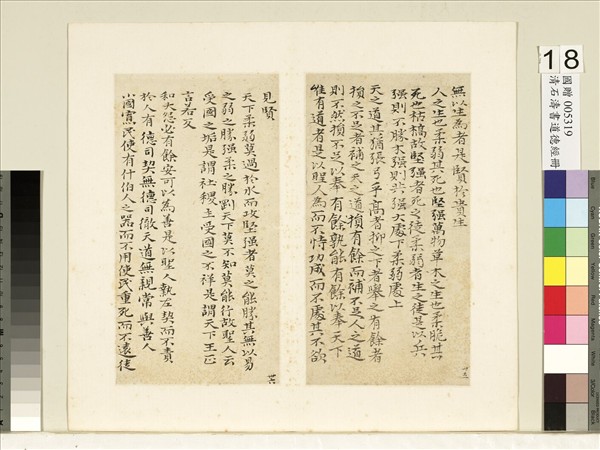 無以生為者是賢於貴生
人之生也柔弱其死也堅强萬物草木之生也柔脆其
死也枯槁故堅强者死之徒柔弱者生之徒是以兵
强則不勝木强則共强大處下柔弱處上
天之道其猶張弓乎高者抑之下者舉之有餘者
損之不足者補之天之道損有餘而補不足人之道
則不然損不足以奉有餘孰能有餘以奉天下
惟有道者是以聖人為而不恃功成而不處其不欲
廿五
見賢
天下柔弱莫過於水而攻堅强者莫之能勝其無以易
之弱之勝强柔之勝剛天下莫不知莫能行故聖人云
受國之垢是謂社稷主受國之不祥是謂天下王正
言若反
和大怨必有餘安可以為善是以聖人執左契而不責
於人有德司契無德司徹天道無親常與善人
小國寡民使有什伯人之器而不用使民重死而不遠徙
廿六
18
國贈 005319
清石濤書道德經冊
Blue
Cyan
Green
Yellow
Red
Magenta
White
3/Color
Black